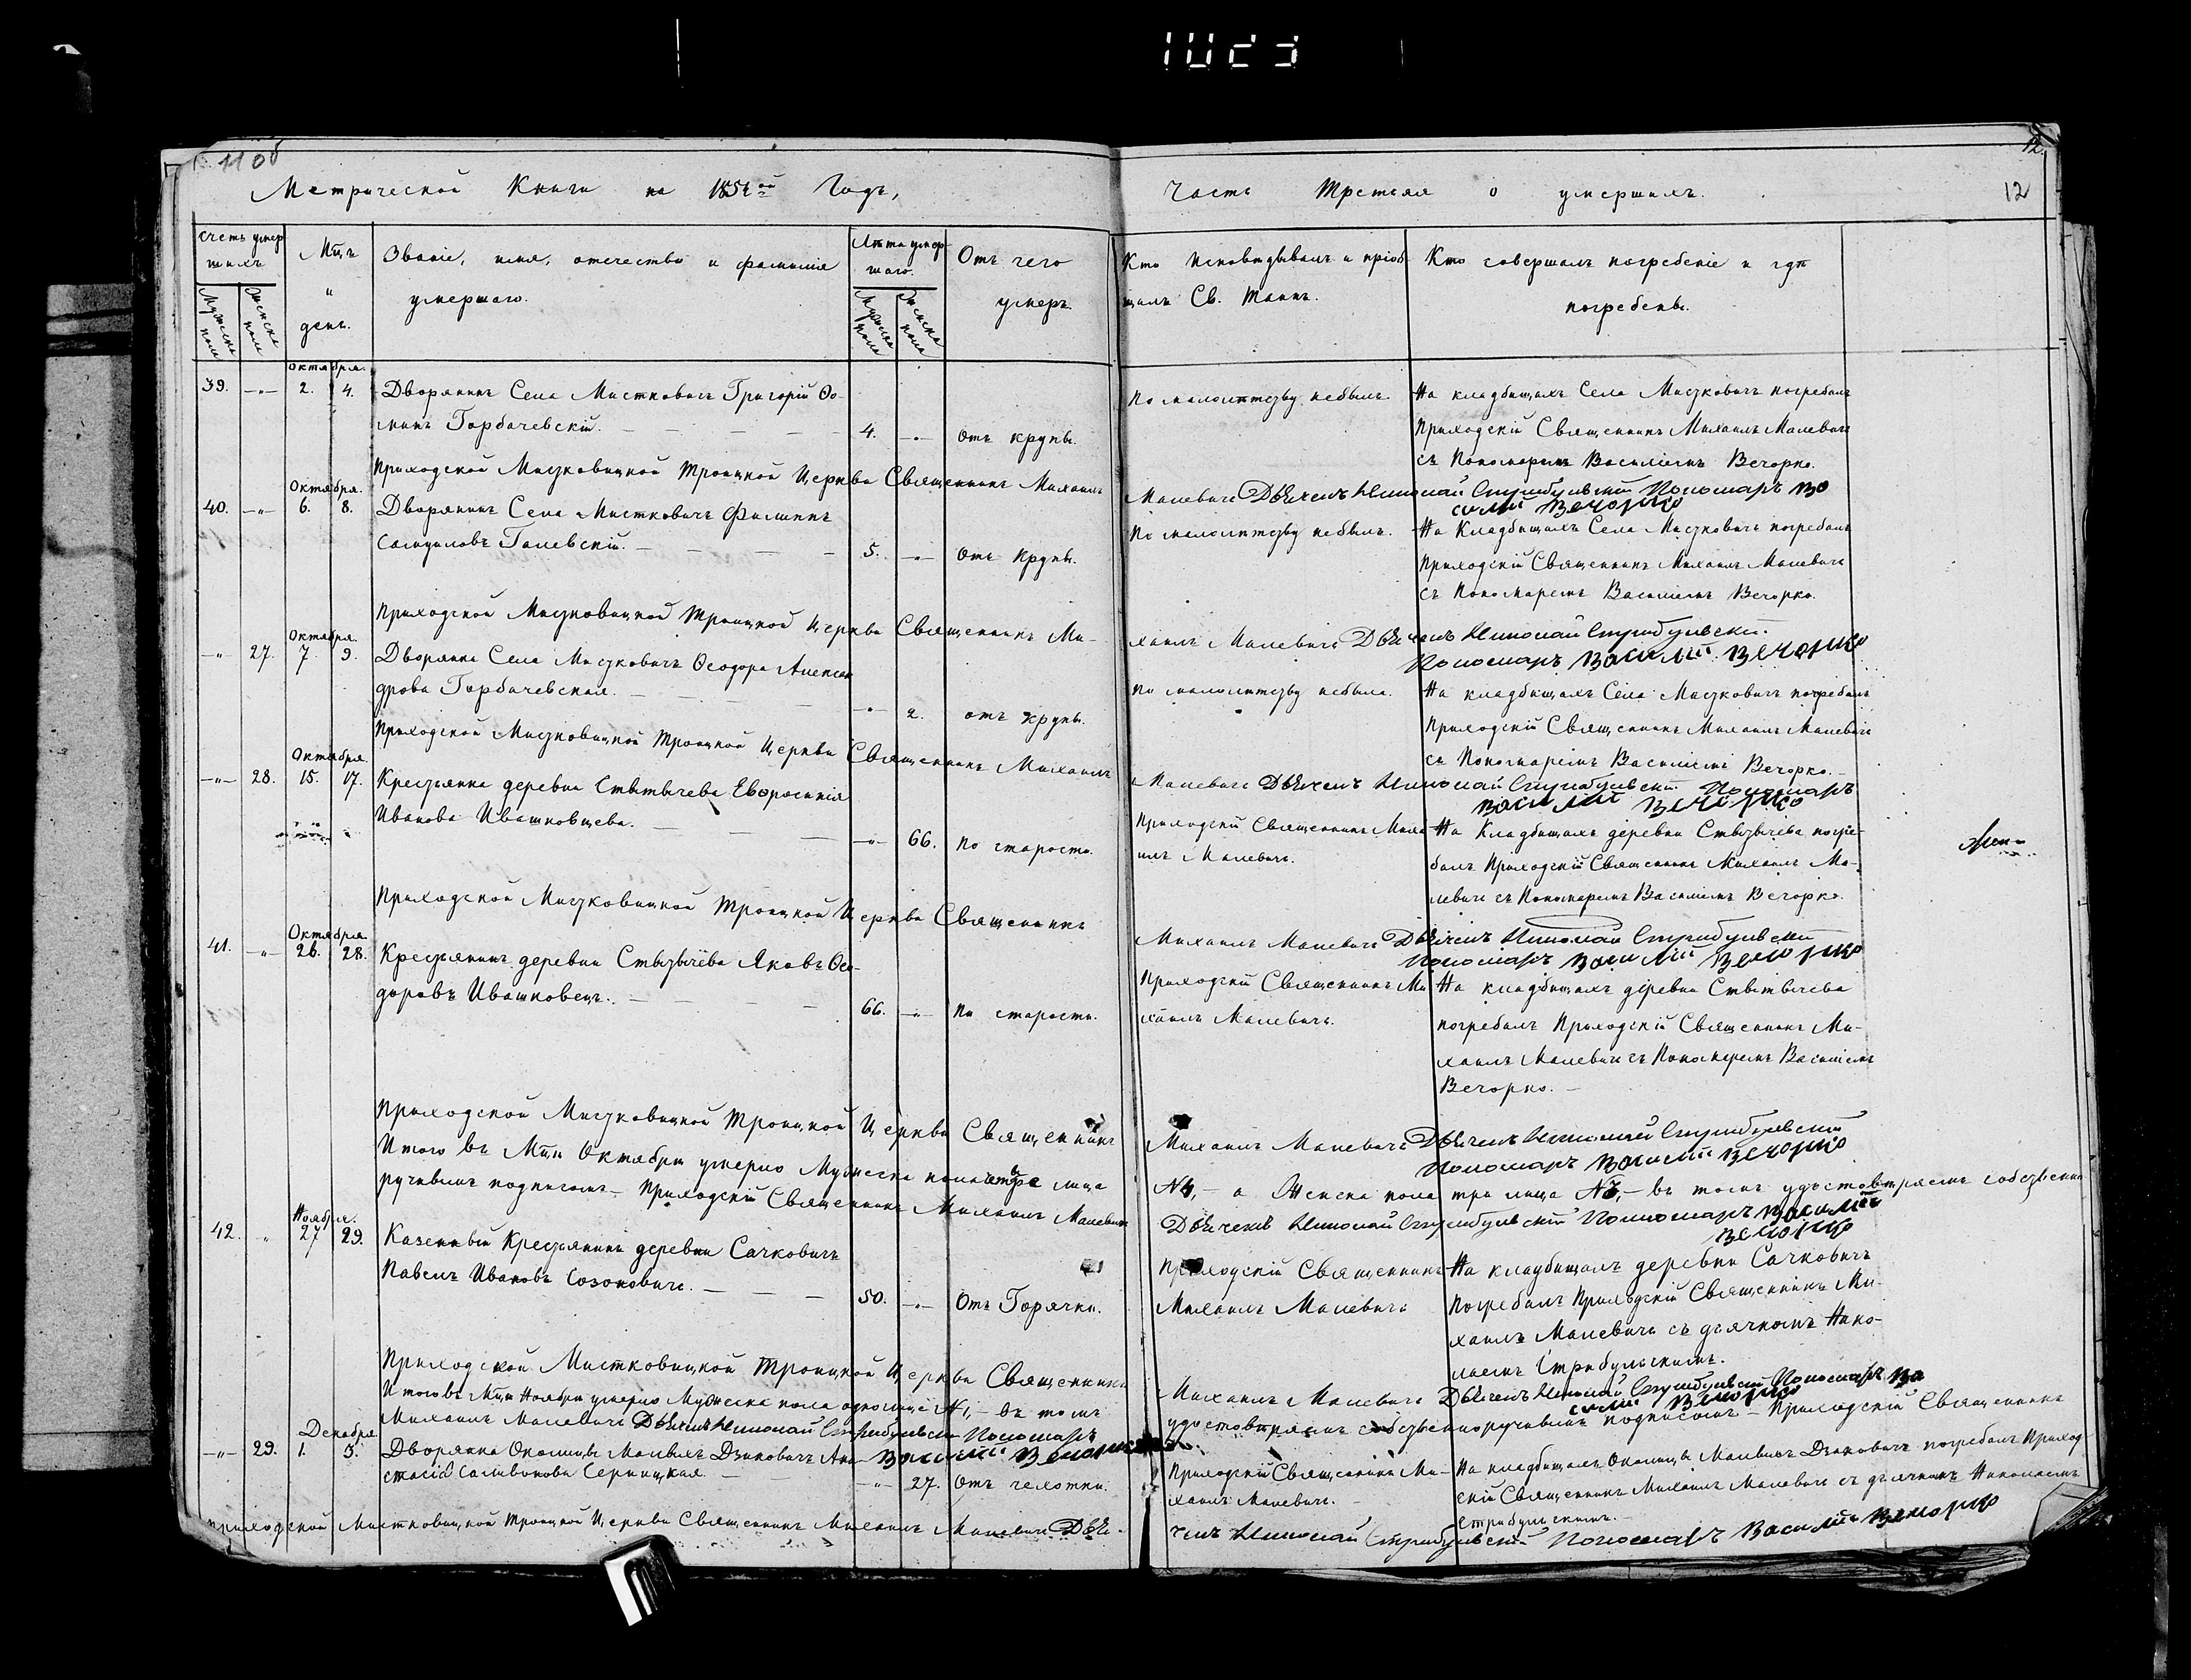 11 об
12.
Метрической Книги на 1851ой Годъ,
Часть Третья о умершихъ.
12
Счетъ умер
шихъ
Мужеска пола
Женска пола
Мцъ
и
день.
Званіе, имя, отечество и фамилія
умершаго.
Лѣта умер-
шаго.
Мужеска пола
Женска пола
Отъ чего
умеръ.
Кто Исповѣдывалъ и пріоб
щалъ Св. Таинъ.
Кто совершалъ погребеніе и гдѣ
погребены.
Октября.
39. -"- 2. 4. Дворянинъ Села Мистковичъ Григорій Ѳо-
минъ Горбачевскій. 4. -"- Отъ крупы.
По малолѣтству небылъ.
На кладбищахъ Села Мистковичъ погребалъ
Приходскій Священникъ Михаилъ Малевичъ
съ Пономаремъ Василіемъ Вечорко.
Приходской Мистковицкой Троицкой Церкви Священникъ Михаилъ
Малевичъ Дьячекъ Николай Стрибульскій Пономарь Ва
силій Вечорко
Октября.
40. -"- 6. 8. Дворянинъ Села Мистковичъ Филиппъ
Самуиловъ Галевскій. 5. -"- Отъ Крупы.
По малолѣтству небылъ.
На Кладбищахъ Села Мистковичъ погребалъ
Приходскій Священникъ Михаилъ Малевичъ
съ Пономаремъ Василіемъ Вечорко.
Приходской Мистковицкой Троицкой Церкви Священникъ Ми-
хаилъ Малевичъ Дьячекъ Николай Стрибульскій.
Пономарь Василій Вечорко
Октября.
-"- 27. 7. 9. Дворянка Села Мистковичъ Ѳеодора Алексан
дрова Горбачевская. -"- 2. отъ крупы.
По малолѣтству небыла.
На кладбищахъ Села Мистковичъ погребалъ
Приходскій Священникъ Михаилъ Малевичъ
съ Пономаремъ Василіемъ Вечорко.
Приходской Мистковицкой Троицкой Церкви Священникъ Михаилъ
Малевичъ Дьячекъ Николай Стрибульскій Пономарь
Василій Вечорко
Октября.
-"- 28. 15. 17. Крестьянка деревни Ствытычева Евфросинія
Иванова Ивашковцева. -"- 66. По старости.
Приходскій Священникъ Миха
илъ Малевичъ.
На Кладбищахъ деревни Ствытычева погре-
балъ Приходскій Священникъ Михаилъ Ма-
левичъ съ Пономаремъ Василіемъ Вечорко.
Приходской Мистковицкой Троицкой Церкви Священникъ
Михаилъ Малевичъ Дьячекъ Николай Стрибульскій
Пономарь Василій Вечорко
Октября.
41. -"- 26. 28. Крестьянинъ деревни Ствытычева Яковъ Ѳео-
доровъ Ивашковецъ. 66. -"- По старости.
Приходскій Священникъ Ми
хаилъ Малевичъ.
На кладбищахъ деревни Ствытычева
погребалъ Приходскій Священникъ Ми-
хаилъ Малевичъ съ Пономаремъ Василіемъ
Вечорко.
Приходской Мистковицкой Троицкой Церкви Священникъ
Михаилъ Малевичъ Дьячекъ Николай Стрибульскій
Пономарь Василій Вечорко
Итого въ Мцѣ Октябрѣ умерло Мужеска пола лица
а Женска пола три лица въ томъ удостовѣряемъ собственно
ручнымъ подписомъ - Приходскій Священникъ Михаилъ Малевичъ
Дьячекъ Николай Стрибульскій Пономарь Василій
Вечорко
Ноября.
42. " 27 29. Казенный Крестьянинъ деревни Сачковичъ
Павелъ Ивановъ Созоновичъ. 50. -"- Отъ Горячки.
Приходскій Священникъ
Михаилъ Малевичъ
На кладбищахъ деревни Сачковичъ
погребалъ Приходскій Священникъ Ми-
хаилъ Малевичъ съ дьячкомъ Нико-
лаемъ Стрибульскимъ.
Приходской Мистковицкой Троицкой Церкви Священникъ
Михаилъ Малевичъ Дьячекъ Николай Стрибульскій Пономарь Ва
силій Вечорко
Итого въ Мцѣ Ноябрѣ умерло Мужеска пола одно лице №1, - въ томъ
удостовѣряемъ собственноручнымъ подписомъ - Приходскій Священникъ
Михаилъ Малевичъ Дьячекъ Николай Стрибульскій Пономарь
Василій Вечорко
Декабря
-"- 29. 1. 3. Дворянка Околицы Малыхъ Дзиковичъ Ана-
стасія Саливонова Серницкая. -"- 27. Отъ чехотки.
Приходскій Священникъ Ми-
хаилъ Малевичъ.
На кладбищахъ Околицы Малыхъ Дзиковичъ погребалъ Приход
скій Священникъ Михаилъ Малевичъ съ дьячкомъ Николаемъ
Стрибульскимъ.
Приходской Мистковицкой Троицкой Церкви Священникъ Михаилъ Малевичъ Дья-
чекъ Николай Стрибульскій Пономарь Василій Вечорко